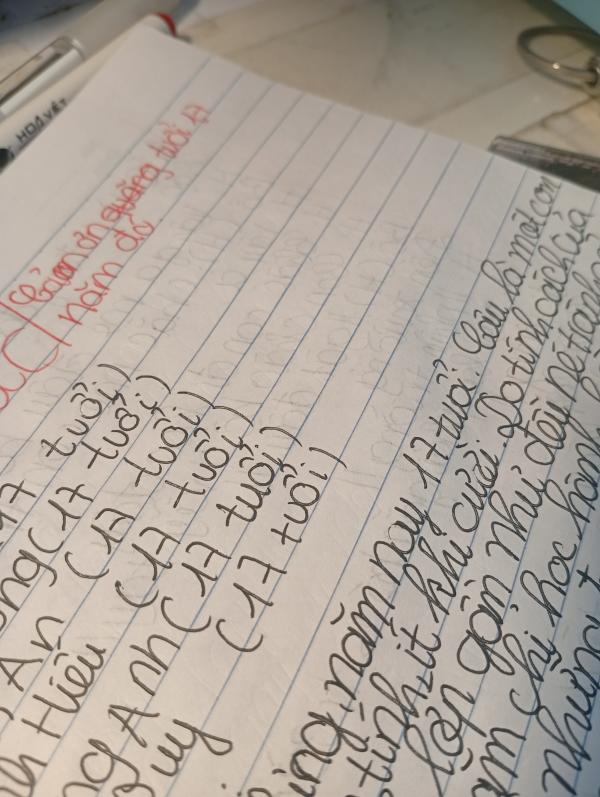 HOA VẾT
Cảm ơn quãng tuổi 17
năm đó
17 tuổi)
(17 tuổi)
An (17 tuổi)
Hiếu (17 tuổi)
Anh (17 tuổi)
uy (17 tuổi)
năm nay 17 tuổi. Cậu là một con
tính, ít khi cười. Do tính cách của
lớp gần như đều né tránh
chỉ học hành
những